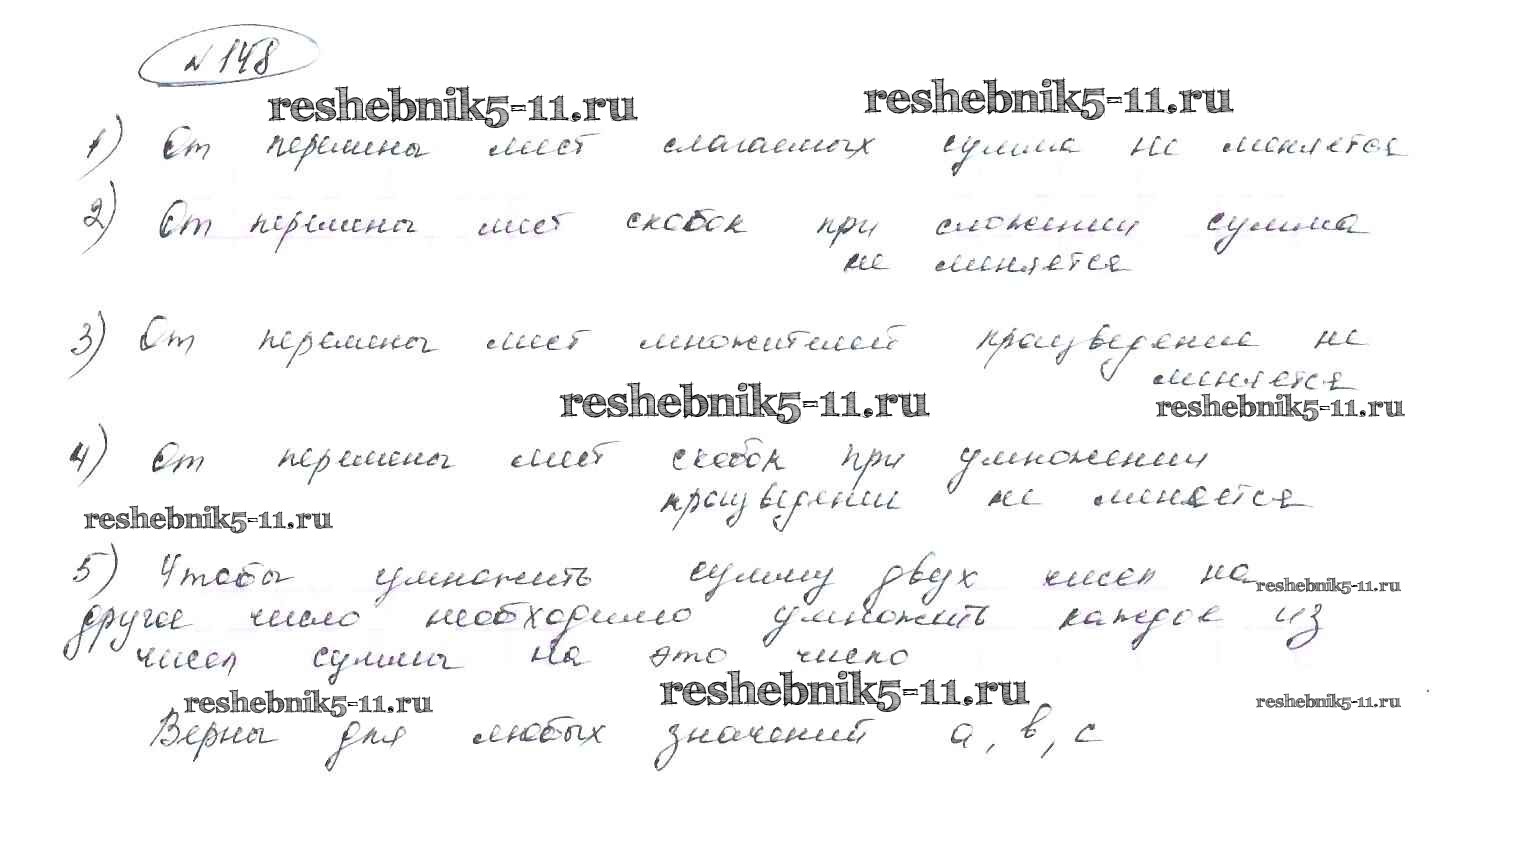 № 148
reshebnik5-11.ru reshebnik5-11.ru
1) От перемены мест слагаемых сумма не меняется
2) От перемены мест скобок при сложении сумма
не меняется
3) От перемены мест множителей произведение не
меняется
reshebnik5-11.ru reshebnik5-11.ru
4) От перемены мест скобок при умножении
произведении не меняется
reshebnik5-11.ru
5) Чтобы умножить сумму двух чисел на
reshebnik5-11.ru
другое число необходимо умножить каждое из
чисел суммы на это число
reshebnik5-11.ru reshebnik5-11.ru reshebnik5-11.ru
Верны для любых значений а, в, с